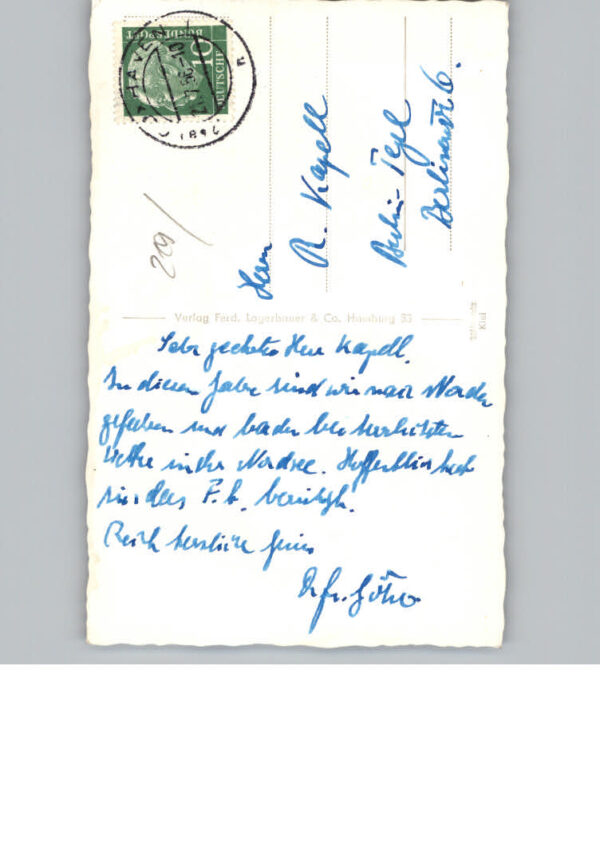 10
DEUTSCHE
BUNDESPOST
Herrn
R. Kapell
Berlin-Tegel
Berlinerstr. 6.
209/
Verlag Ferd. Lagerbauer & Co. Hamburg 33
Kiel
Sehr geehrter Herr Kapell.
In diesem Jahre sind wir nach Norden
gefahren und baden bei
in der Nordsee. Hoffentlich hat
sich das F. A. beruhigt.
Recht herzliche